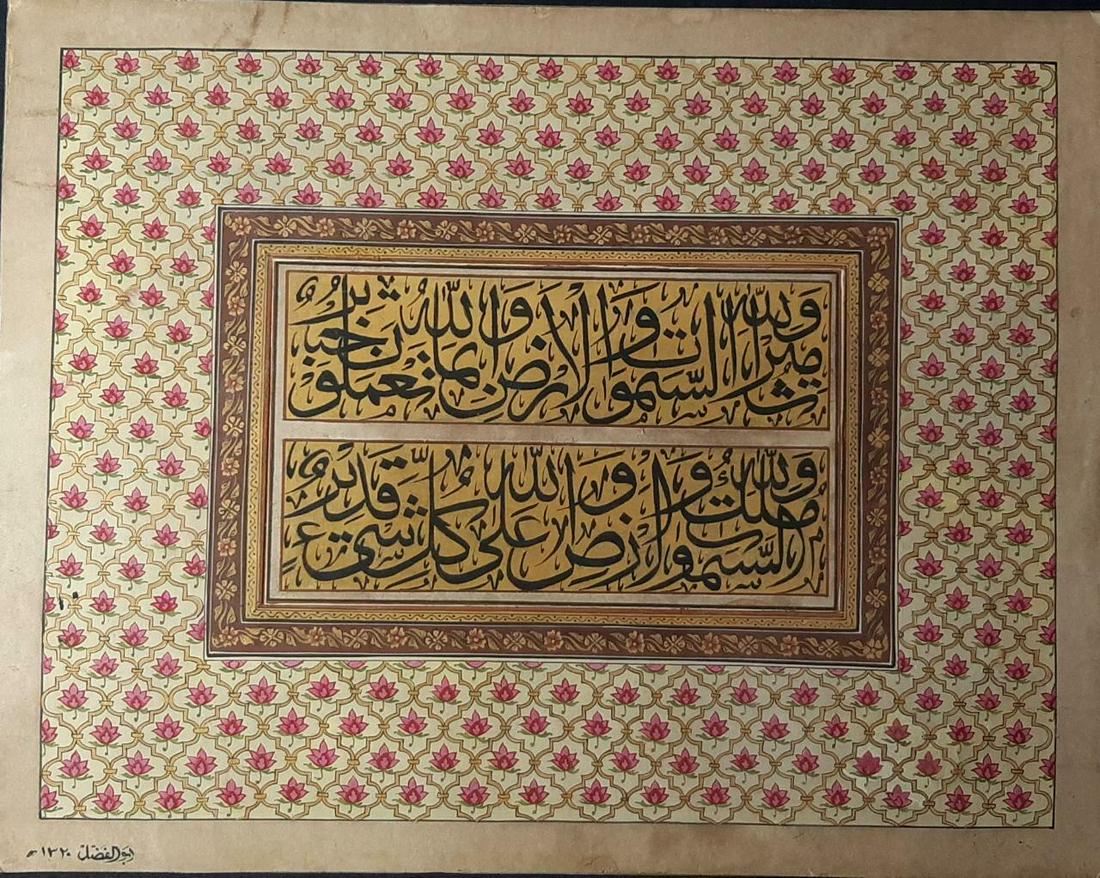 ولله ميراث السموات والارض والله بما تعملون خبير
ولله ملك السموات والارض والله على كل شئ قدير
١٠
ابو الفضل